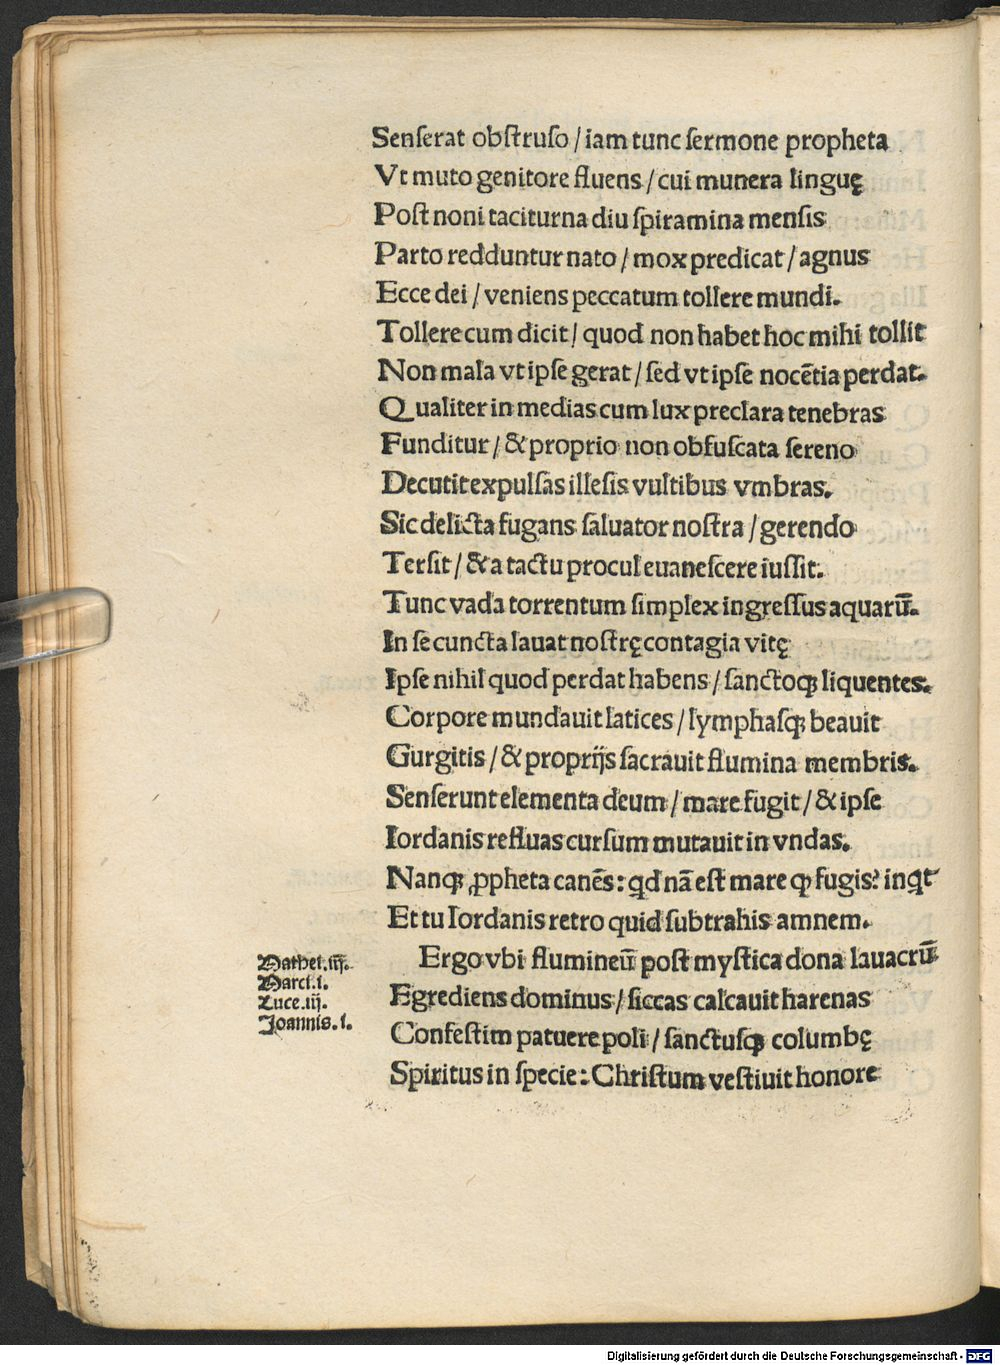 Senſerat obſtruſo / iam tunc ſermone propheta
Vt muto genitore fluens / cui munera linguę
Poſt noni taciturna diu ſpiramina menſis
Parto redduntur nato / mox predicat / agnus
Ecce dei / veniens peccatum tollere mundi.
Tollere cum dicit / quod non habet hoc mihi tollit
Non mala vt ipſe gerat / ſed vt ipſe nocẽtia perdat.
Qualiter in medias cum lux preclara tenebras
Funditur / & proprio non obfuſcata ſereno
Decutit expulſas illeſis vultibus vmbras.
Sic delicta fugans ſaluator noſtra / gerendo
Terſit / & a tactu procul euaneſcere iuſſit.
Tunc vada torrentum ſimplex ingreſſus aquarũ.
In ſe cuncta lauat noſtrę contagia vitę
Ipſe nihil quod perdat habens / ſanctoqꝫ liquentes.
Corpore mundauit latices / lymphaſqꝫ beauit
Gurgitis / & proprijs ſacrauit flumina membris.
Senſerunt elementa deum / mare fugit / & ipſe
Iordanis refluas curſum mutauit in vndas.
Nanqꝫ ꝓpheta canẽs: qd nã eſt mare ꝙ fugis? inqt
Et tu Iordanis retro quid ſubtrahis amnem.
Ergo vbi flumineũ poſt myſtica dona lauacrũ
Egrediens dominus / ſiccas calcauit harenas
Confeſtim patuere poli / ſanctuſqꝫ columbę
Spiritus in ſpecie: Chriſtum veſtiuit honore
Mathei.iij.
Marci.i.
Luce.iij.
Joannis.i.
Digitalisierung gefördert durch die Deutsche Forschungsgemeinschaft - DFG